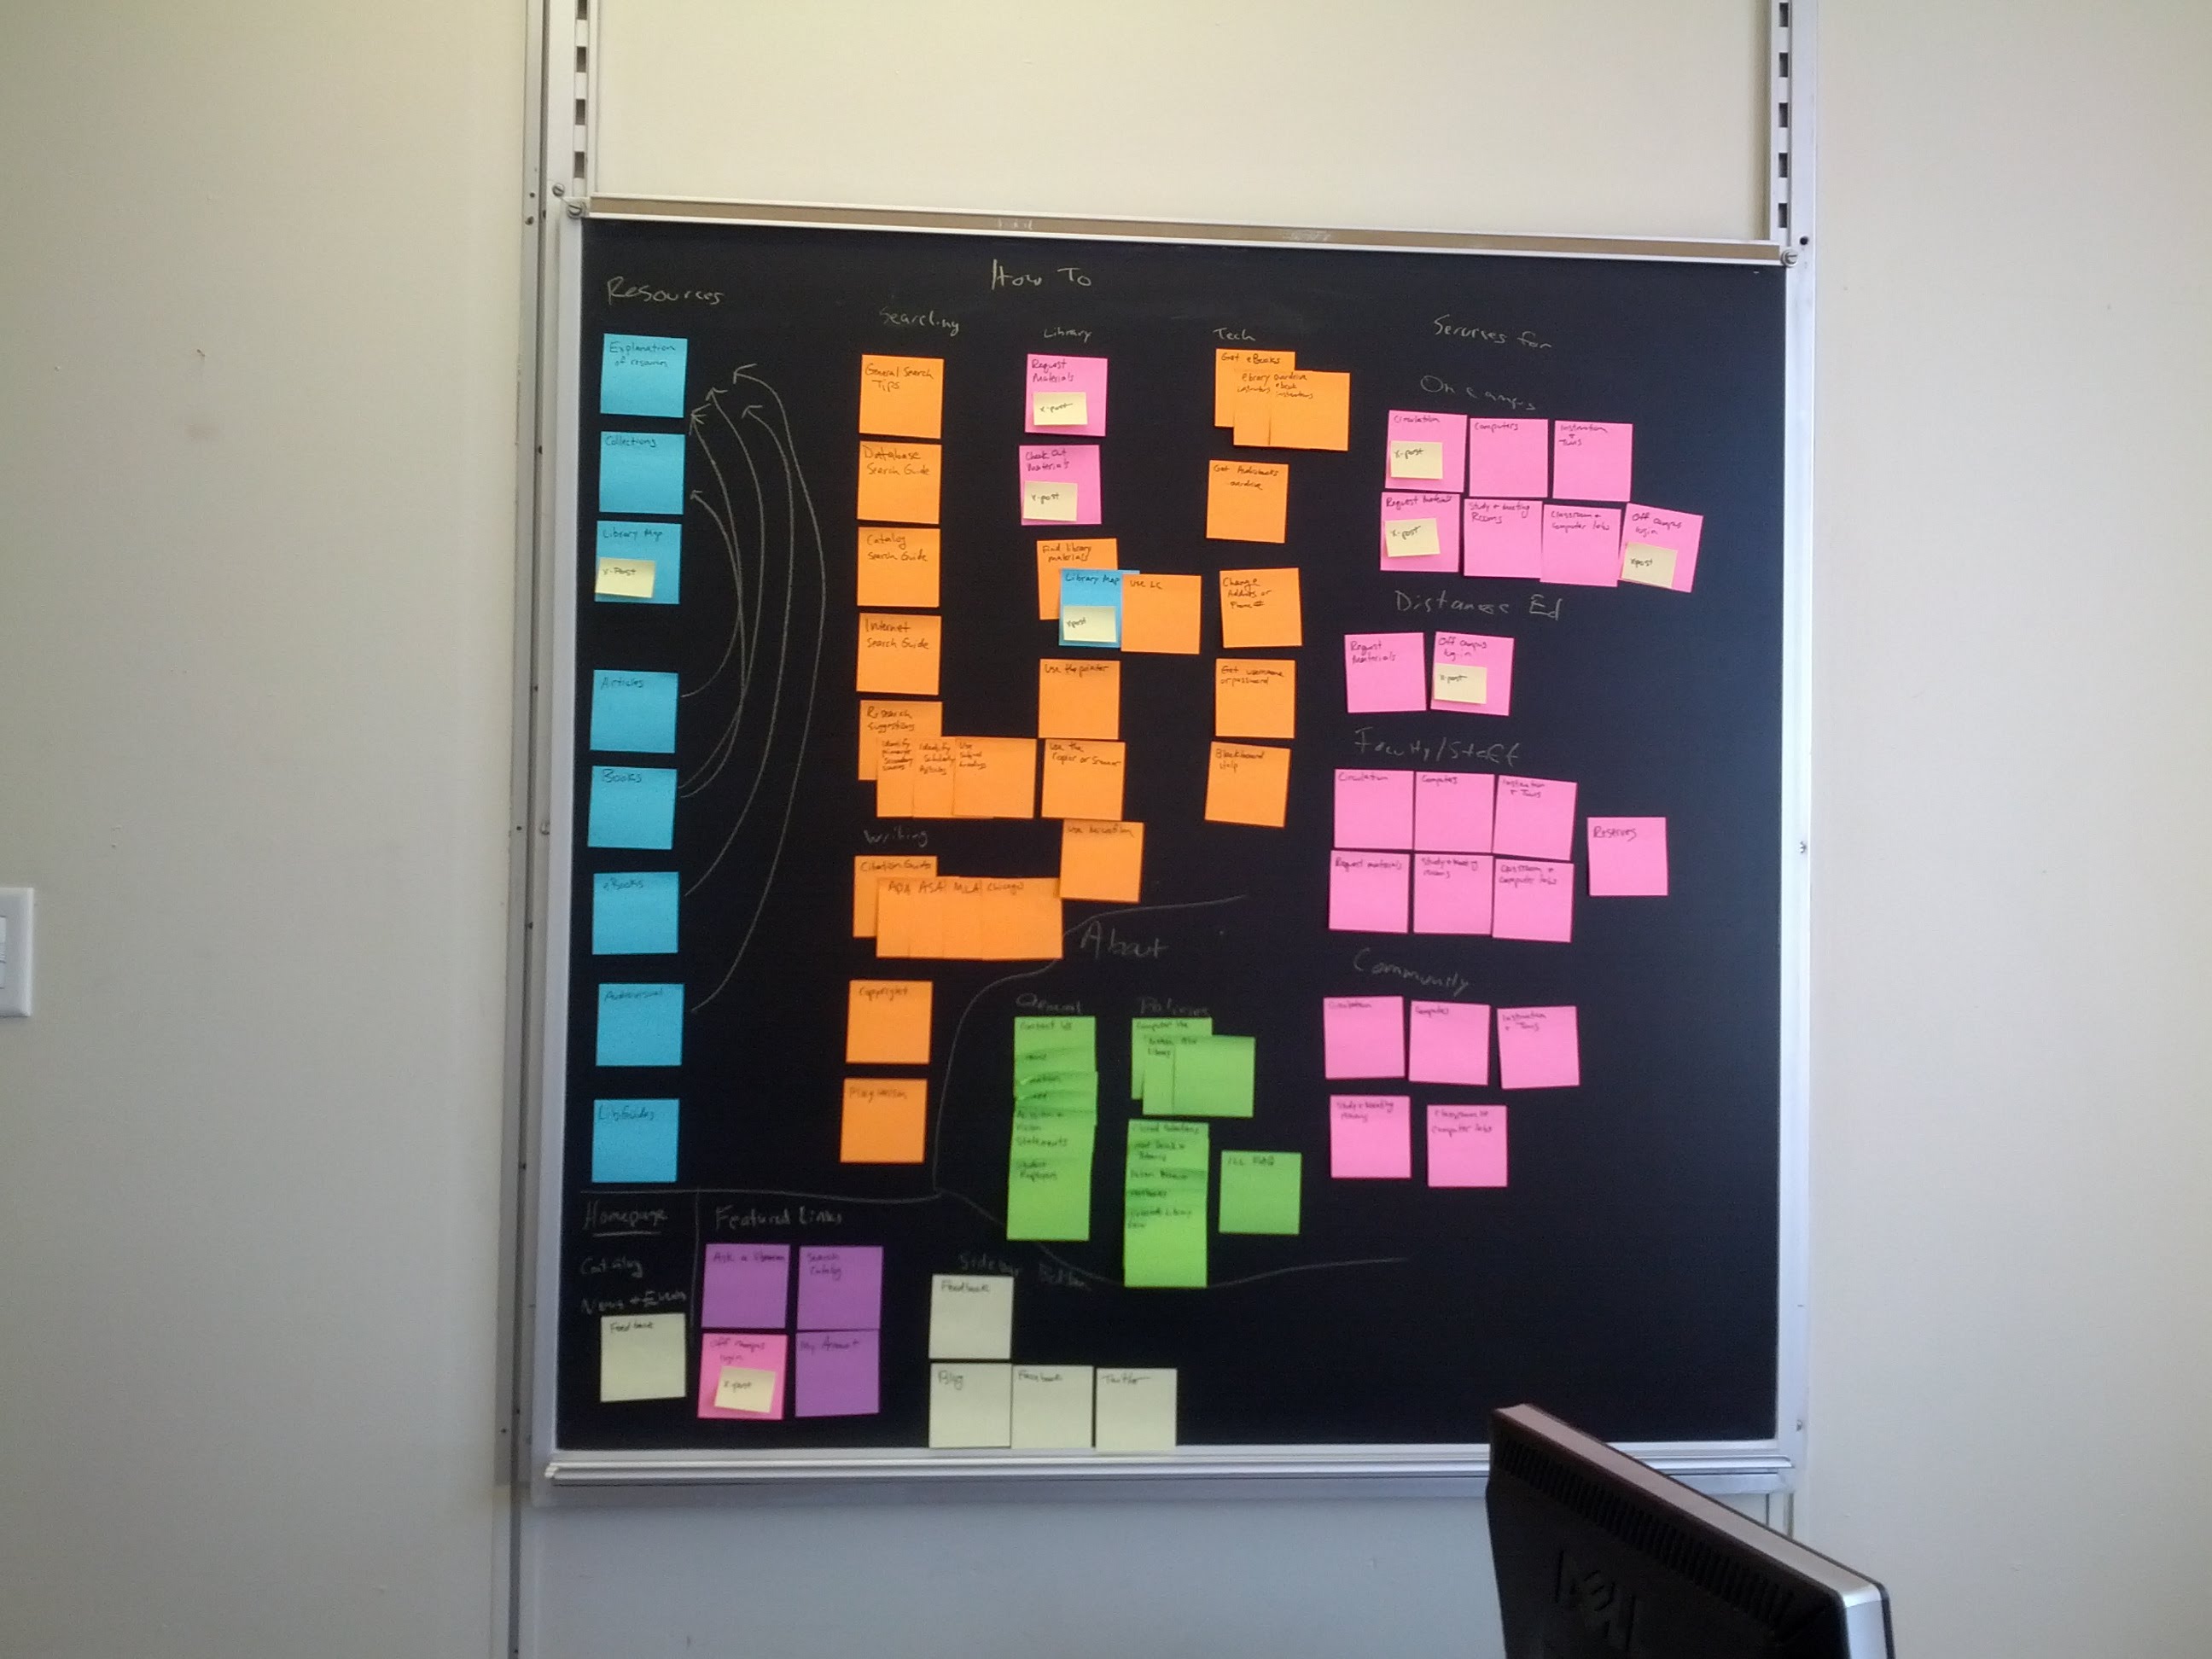 Resources
Explanation
of resources
Collections
Library Map
x-Post
Articles
Books
eBooks
Audiovisual
LibGuides
How To
Searching
General Search
Tips
Database
Search Guide
Catalog
Search Guide
Internet
Search Guide
Research
Suggestions
Identify
primary
Secondary
sources
Identify
Scholarly
Articles
Use
Writing
Citation Guide
APA
ASA
MLA
Chicago
Copyright
Plagiarism
Library
Request
Materials
x-post
Check Out
Materials
x-post
Find library
materials
Library Map
xpost
Use LC
Use the printer
Use the
Copier or Scanner
Use Microfilm
Tech
Get eBooks
Get Audiobooks
overdrive
Change
Address or
Phone #
Get username
or password
Blackboard
Help
Services for
On campus
Circulation
x-post
Computers
Instruction
+
Tours
Request Materials
x-post
Study + Meeting
Rooms
Classroom +
Computer labs
Off campus
login
xpost
Distance Ed
Request
Materials
Off campus
log in
x-post
Faculty/Staff
Circulation
Computers
Instruction
+ Tours
Reserves
Request materials
Study + Meeting
rooms
Classroom +
Computer labs
Community
Circulation
Computers
Instruction
+ Tours
Study + Meeting
Rooms
Classroom +
Computer labs
About
General
Contact Us
Mission +
Vision
Statements
Student
Employees
Policies
Computer Use
Library
ILL FAQ
Homepage
Catalog
News + Events
Feedback
Featured Links
Ask a librarian
Search
Catalog
Off campus
login
x-post
My Account
Sidebar
Feedback
Blog
Facebook
Twitter